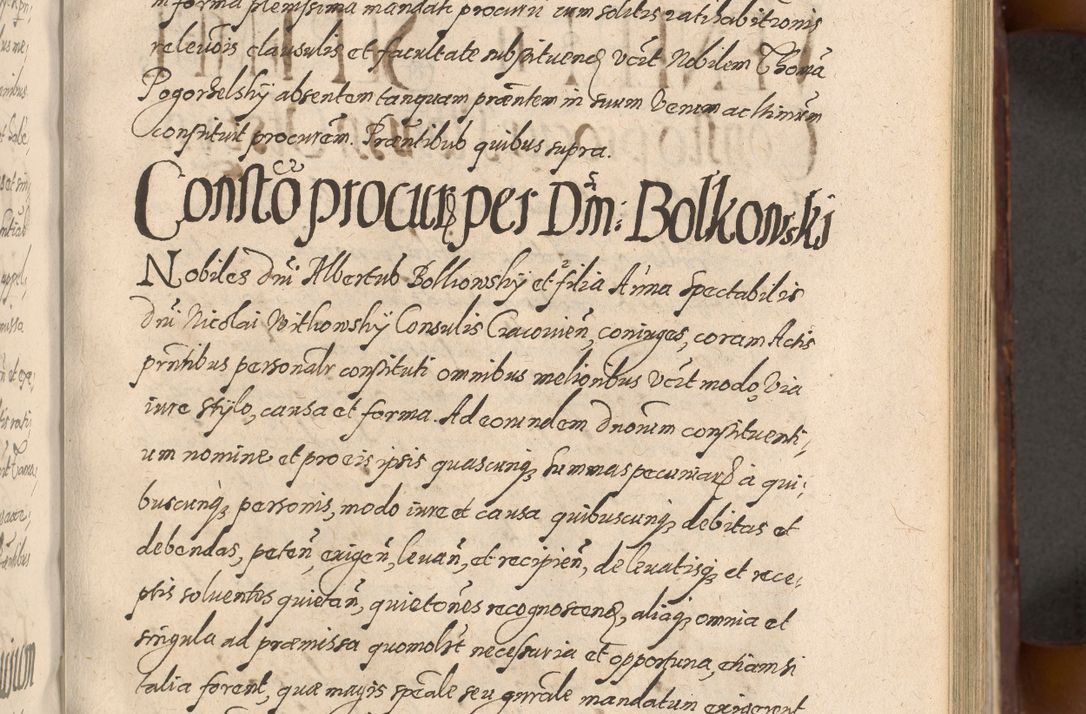 in forma plenissima mandati procurii cum solitis ratihabitionis
relevõis clausulis et facultate substituend, Vczt Nobilem Thomã
Pogorzelsky absentem tanquam prãentem in suum Verum ac
constituit procurem. Prãentibus quibus supra.
Constcõ procur per Dm̃: Bolkowski
Nobiles dñi Albertus Bolkowsky et filia Anna Spectabilis
dñi Nicolai Witkowsky Consulis Cracovien̄, coniuges, coram Actis
prñtibus personalr constituti omnibus melioribus Vczt modo, Via
iure stylo, causa et forma. Ad eorundem dnorum constituenti,
um nomine et pro eis ipsis quascunq, summas pecuniar à qui,
buscunq personis, modo iure et causa quibuscunq debitas et
debendas, peten̄, exigen̄, levan̄, et recipien̄, de levatisq et rece,
ptis solventes quietan̄, quietoñes recognoscend, aliaq omnia et
singula ad præmissa quomolbt necessaria et opportuna, etiamsi
talia forent, quæ magis speãle seu gnrale mandatum exigerent